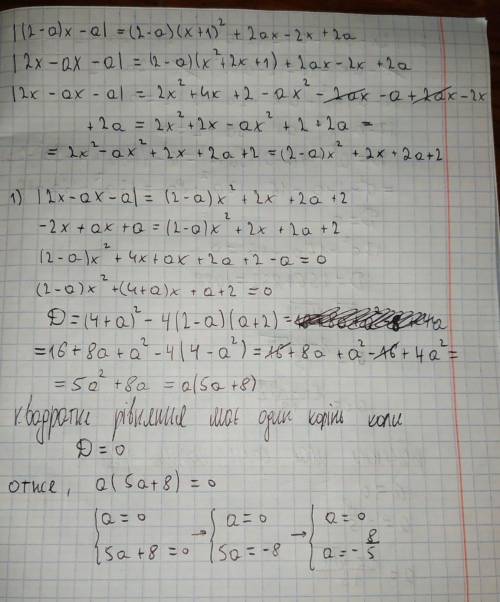 |(2-a)x-a| = (2-a)(x+1)² + 2ax - 2x + 2a
|2x - ax - a| = (2-a)(x²+2x+1) + 2ax - 2x + 2a
|2x - ax - a| = 2x² + 4x + 2 - ax² - 2ax - a + 2ax - 2x
+ 2a = 2x² + 2x - ax² + 2 + 2a =
= 2x² - ax² + 2x + 2a + 2 = (2-a)x² + 2x + 2a + 2
1) |2x - ax - a| = (2-a)x² + 2x + 2a + 2
-2x + ax + a = (2-a)x² + 2x + 2a + 2
(2-a)x² + 4x + ax + 2a + 2 - a = 0
(2-a)x² + (4+a)x + a + 2 = 0
D = (4+a)² - 4(2-a)(a+2) =
= 16 + 8a + a² - 4(4 - a²) = 16 + 8a + a² - 16 + 4a² =
= 5a² + 8a = a(5a+8)
Квадратне рівняння має один корінь коли
D = 0
отже, a(5a+8) = 0
{a = 0 → {a = 0 → {a = 0
{5a + 8 = 0 {5a = -8 {a = -8/5